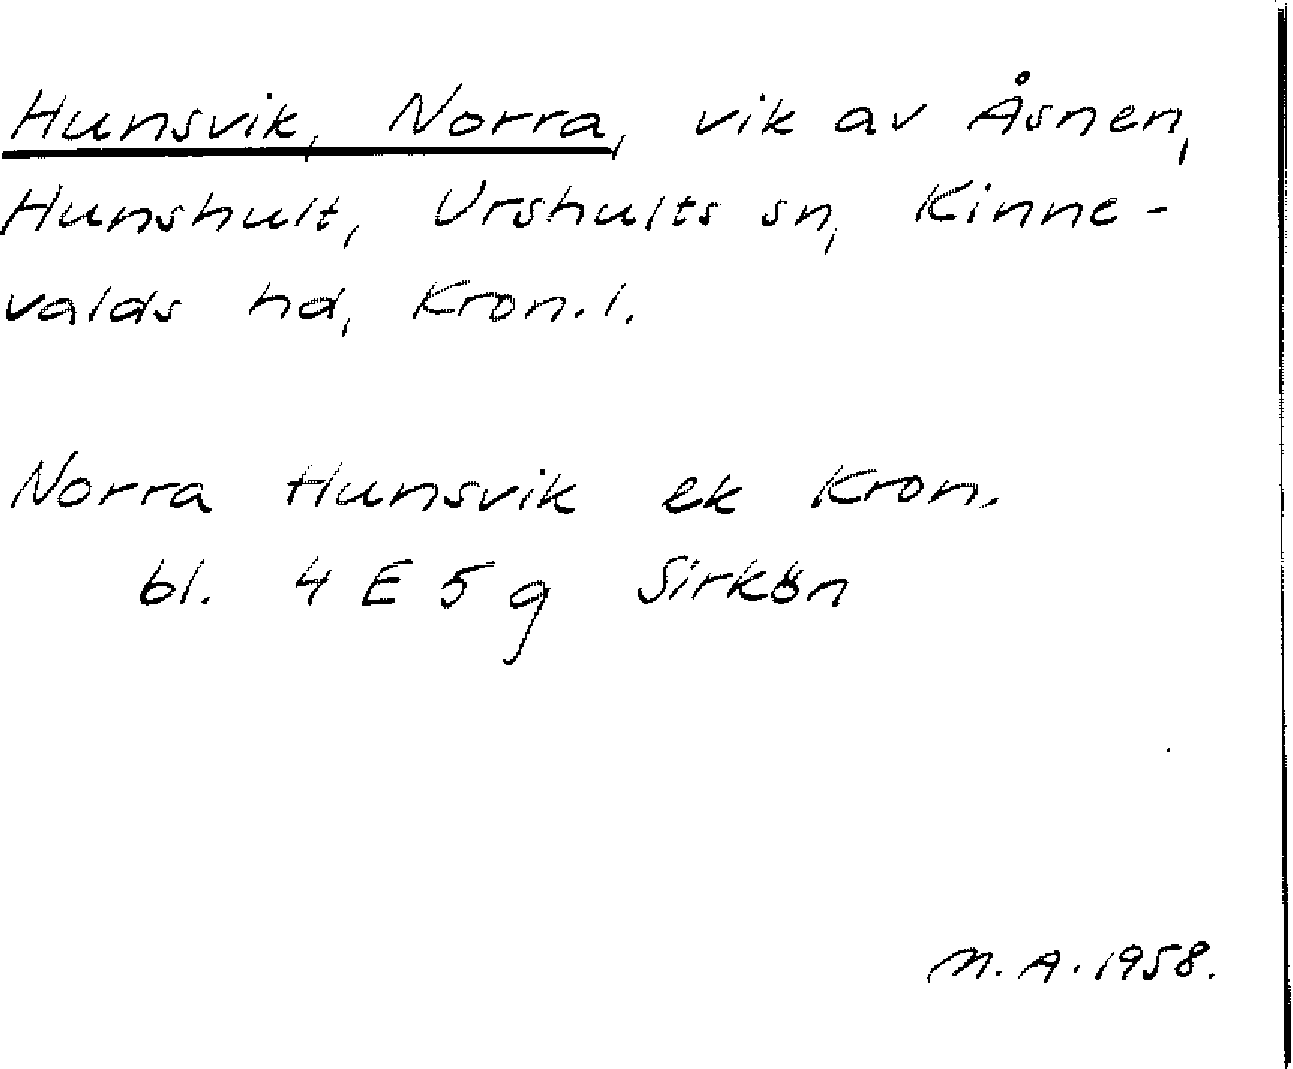 Hunsvik, Norra, vik av Åsnen,
Hunshult, Urshults sn, Kinne-
valds hd, Kron. l.
Norra Hunsvik ek Kron.
bl. 4 E 5 g Sirkön
M. A. 1958.